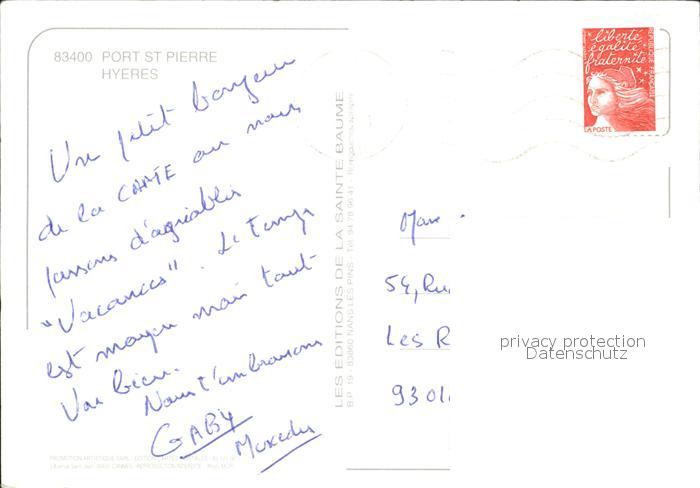 83400 PORT ST PIERRE
HYERES
Un petit bonjour
de la CÔTE où nous
passons d'agréables
"Vacances". Le temps
est moyen mais tout
Va bien.
Nous t'embrassons
GABY
Mercedes
LES ÉDITIONS DE LA SAINTE BAUME
B.P. 19 - 83860 NANS LES PINS - Tél. 94 78 96 41 - REPRODUCTION INTERDITE
liberté
égalité
fraternité
RÉPUBLIQUE FRANÇAISE
LA POSTE
54, Ru
Les R
privacy protection
Datenschutz